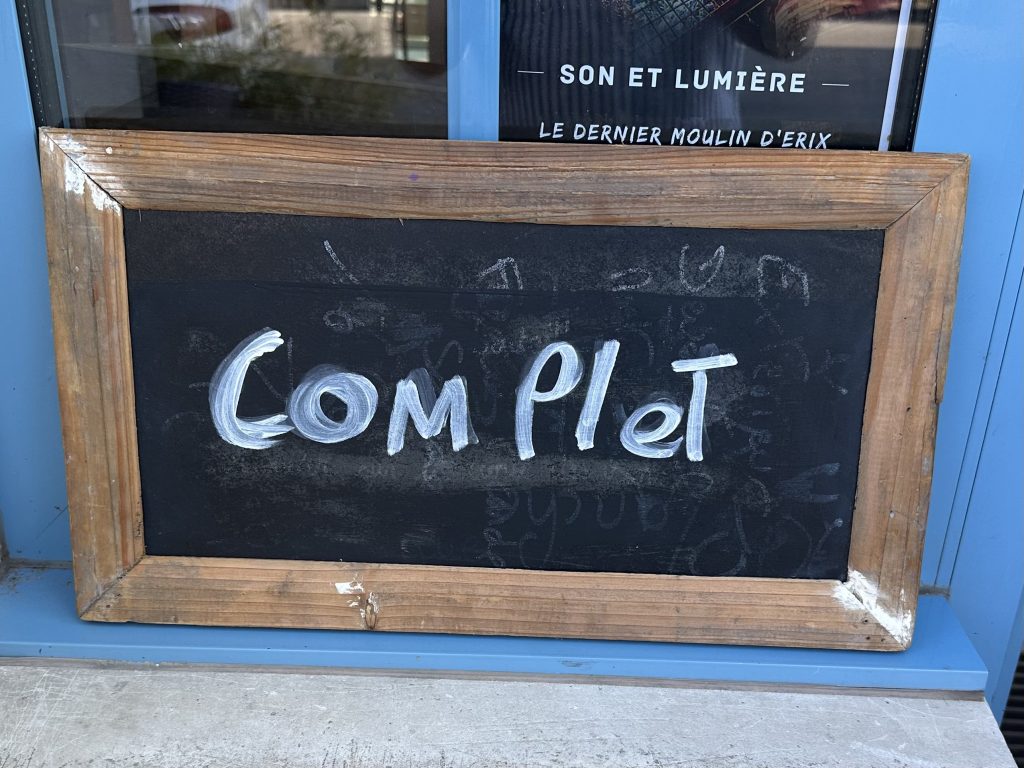 SON ET LUMIÈRE
LE DERNIER MOULIN D'ERIX
COMPleT